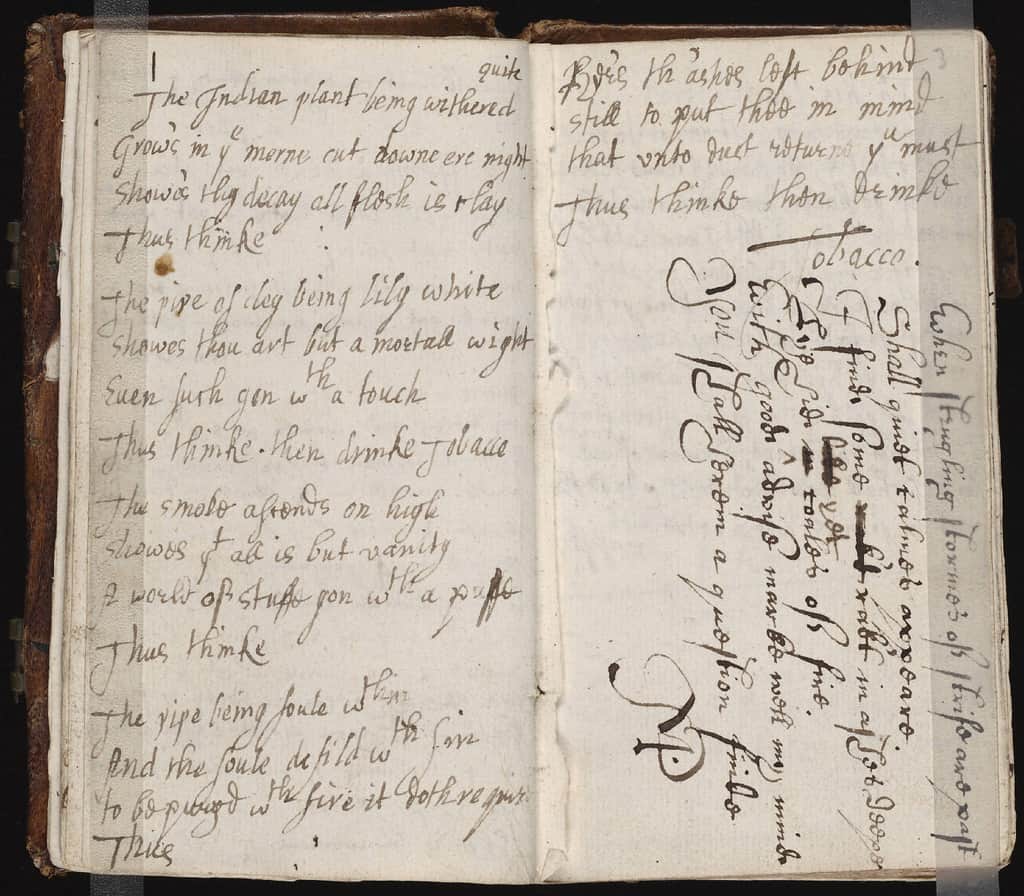 1
quite
The Indian plant being withered
Grow's in yͤ morne cut downe ere night
Show's thy decay all flesh is clay
Thus thinke
The pipe of cley being lily white
Showes thou art but a mortall wight
Even such gon wᵗʰ a touch
Thus thinke. then drinke Tobacco
The smoke asends on high
Showes yᵗ all is but vanity
A world of stuffe gon wᵗʰ a puffe
Thus thinke
The pipe being foule wᵗʰin
And the soule defild wᵗʰ sin
to be purged wᵗʰ fire it doth requir
Thus
th'ashes left behind
still to put thee in mind
that unto dust returne yᵘ must
Thus thinke then drinke
Tobacco.
When strugling storme's of strife are past
Shall quiet calme's appeare.
I find some in ashes deepe
coales of fire.
With good advise marke well my minde
You shall herein a question finde